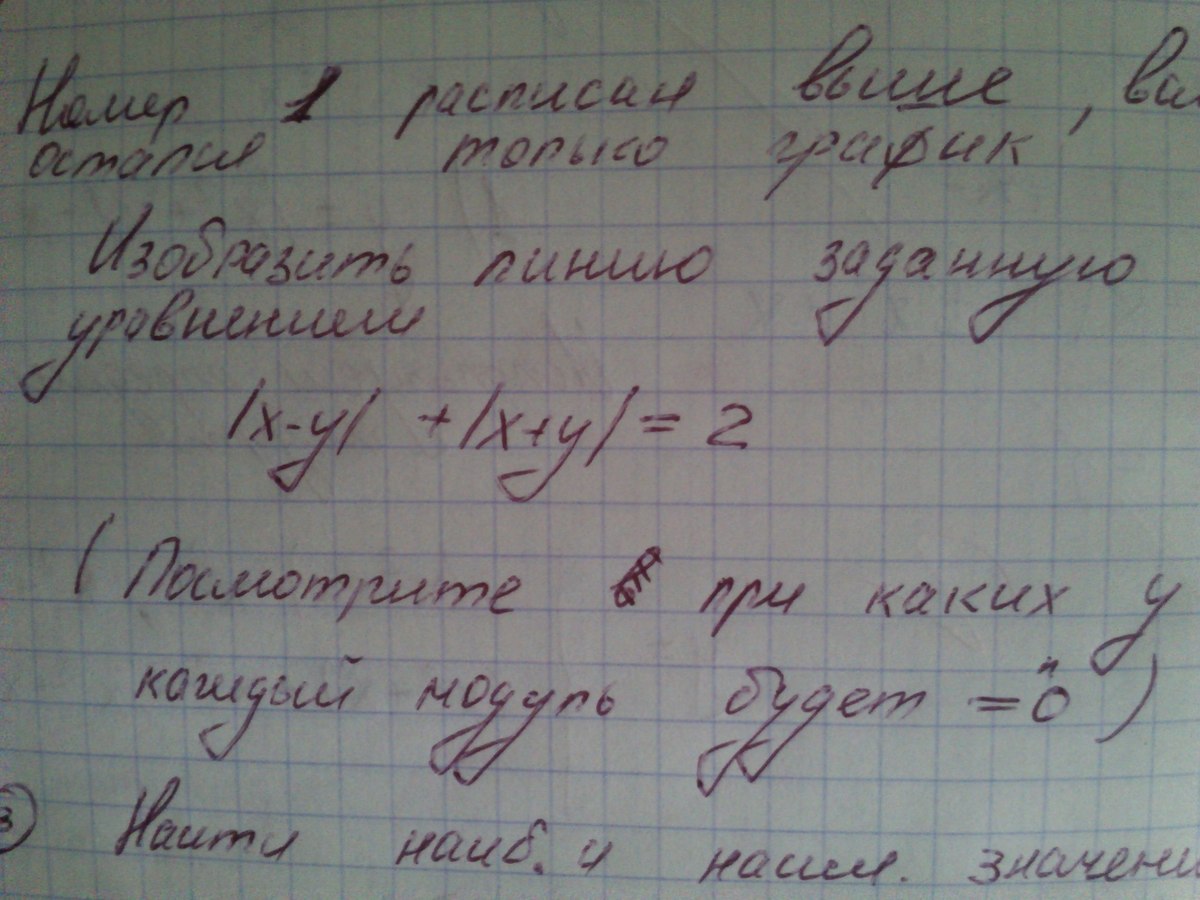 Номер 1 расписан выше, вам
остался только график
Изобразить линию заданную
уравнением
|x-y| + |x+y| = 2
( Посмотрите при каких y
каждый модуль будет = "0 )
3 Найти наиб. и наим. значени